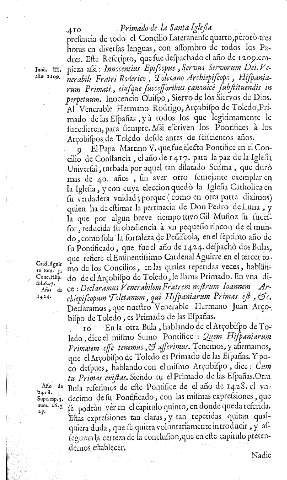 410 Primado de la Santa Iglesia
presencia de todo el Concilio Lateranense quarto, peroró tres
horas en diversas lenguas, con assombro de todos los Pa-
dres. Este Rescripto, que fue despachado el año de 1209. em-
pieza assi: Innocentius Episcopus, Servus Servorum Dei, Ve-
nerabili Fratri Roderico, Toletano Archiepiscopo, Hispania-
rum Primati, eiusque successoribus canonicè substituendis in
perpetuum. Inocencio Obispo, Siervo de los Siervos de Dios,
Al Venerable Hermano Rodrigo, Arçobispo de Toledo, Pri-
mado de las Españas, y à todos los que legitimamente le
sucedieren, para siempre. Assi escriven los Pontifices à los
Arçobispos de Toledo desde antes de seiscientos años.
9 El Papa Martino V. que fue electo Pontifice en el Con-
cilio de Constancia, el año de 1417. para la paz de la Iglesia
Universal, turbada por aquel tan dilatado Scisma, que durò
mas de 40. años, sin aver otro semejante exemplar en
la Iglesia, y con cuya eleccion quedò la Iglesia Catholica en
su verdadera unidad; porque
quien ha de estimar la pertinacia de Don Pedro de Luna, y
la que por algun breve tiempo tuvo Gil Muñoz su sucess-
sor, reducida su obediencia à un pequeño rincon de el mun-
do, como solo la fortaleza de Peñiscola, en el septimo año de
su Pontificado, que fue el año de 1424. despachò dos Bulas,
que refiere el Eminentissimo Cardenal Aguirre en el tercer to-
mo de los Concilios, en las quales repetidas veces, hablan-
do de el Arçobispo de Toledo, le llama Primado. En una di-
ce: Declaramus Venerabilem Fratrem nostrum Ioannem Ar-
chiepiscopum Toletanum, qui Hispaniarum Primas est, &c.
Declaramos, que nuestro Venerable Hermano Juan Arço-
bispo de Toledo, es Primado de las Españas.
10 En la otra Bula, hablando de el Arçobispo de To-
ledo, dice el mismo Sumo Pontifice: Quem Hispaniarum
Primatem esse tenemus, & asserimus. Tenemos, y afirmamos,
que el Arçobispo de Toledo es Primado de las Españas. Y po-
co despues, hablando con el mismo Arçobispo, dice: Cum
tu Primas existas. Siendo tu el Primado de las Españas. Otra
Bula referimos de este Pontifice de el año de 1428. el un-
decimo de su Pontificado, con las mismas expressiones, que
se podrán vèr en el capitulo quinto, en donde queda referida.
Estas expressiones tan claras, y tan repetidas quitan qual-
quiera duda, que se quiera voluntariamente introducir, y as-
seguran la certeza de la conclusion, que en este capitulo preten-
demos establecer.
Nadie
año 1209.
Card. Aguir.
Año de
1424.
Año de
1428.